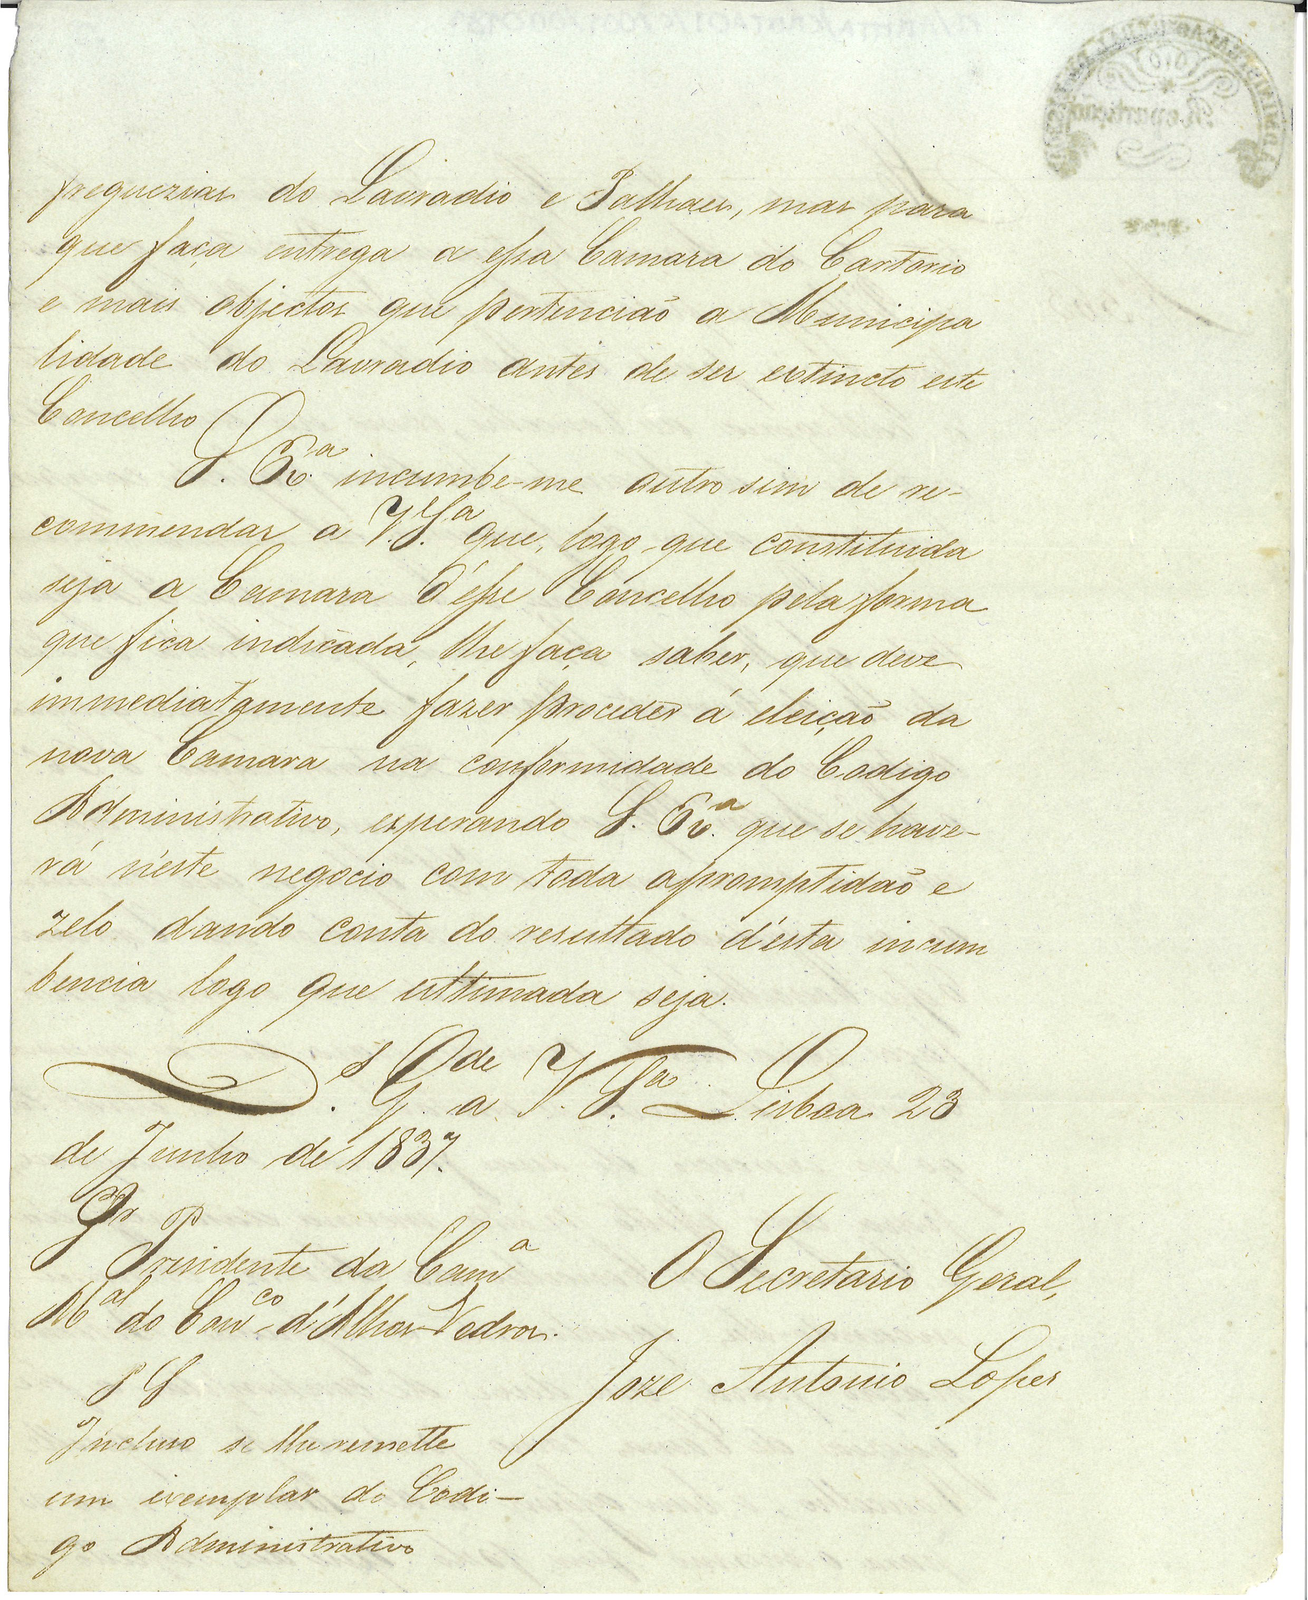 freguezias do Lavradio e Palhaes, mas para
que faça entrega a essa Camara do Cartorio
e mais objectos que pertencião a Municipa
lidade do Lavradio antes de ser extincto este
Concelho
S. Ex.ª incumbe-me outro sim de re-
commendar a V. S.ª que, logo que constituida
seja a Camara d'esse Concelho pela forma
que fica indicada, lhe faça saber, que deve
immediatamente fazer proceder á eleição da
nova Camara na conformidade do Codigo
Administrativo, esperando S. Ex.ª que se have-
rá n'este negocio com toda a promptidão e
zelo dando conta do resultado d'esta incum
bencia logo que ultimada seja.
D.s G.de a V. S.ª Lisboa 23
de Junho de 1837.
Sr Presidente da Cam.ª
M.al do Con.co d'Alhos Vedros.
O Secretario Geral,
Joze Antonio Lopes
P S
Incluso se lhe remette
um exemplar do Codi-
go Administrativo